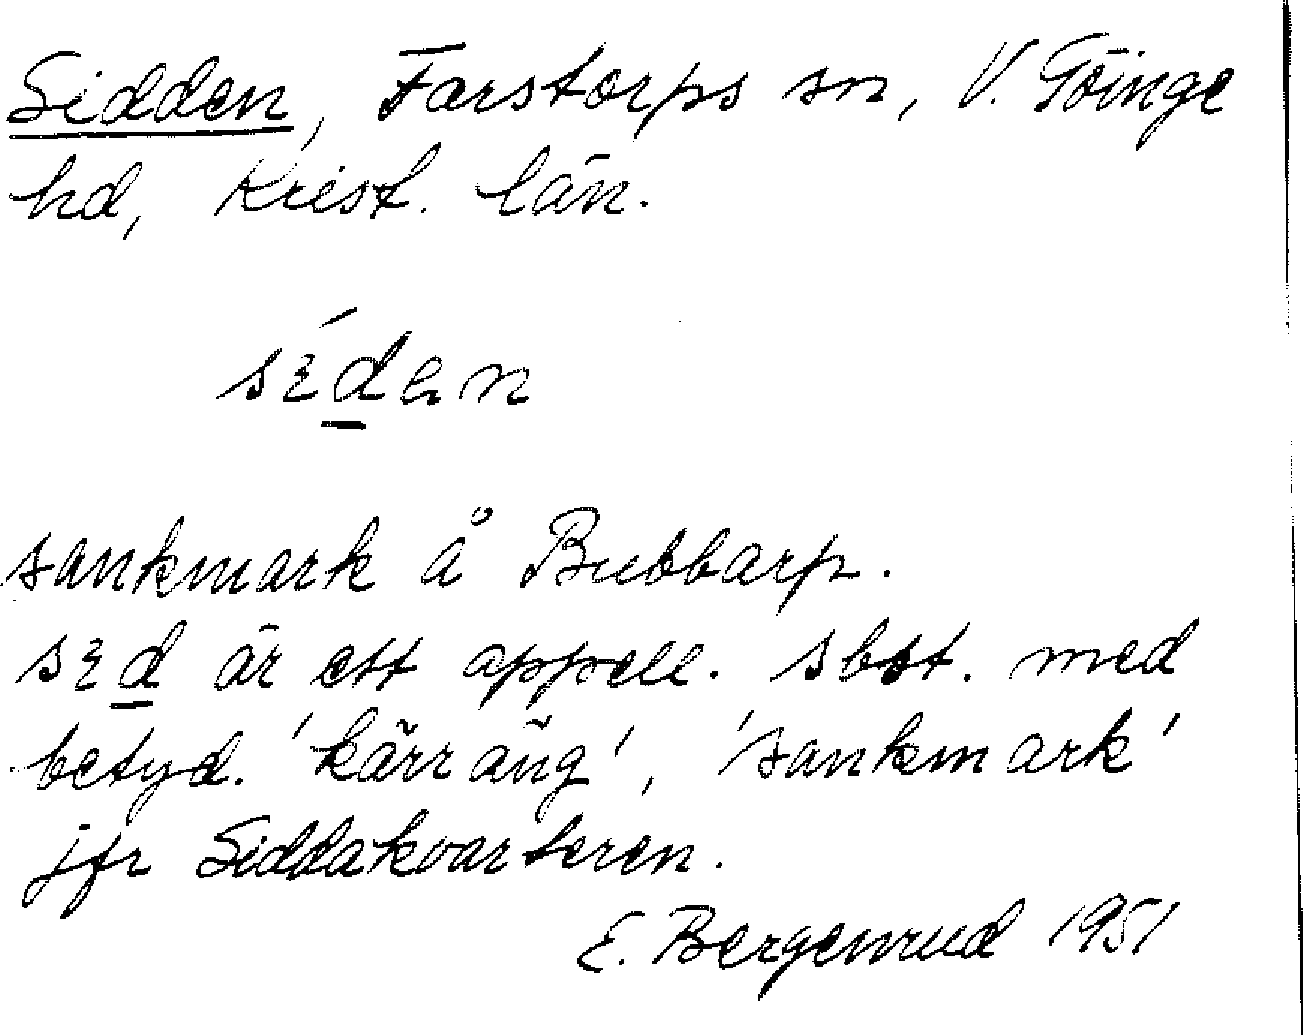 Sidden, Farstorps sn, V. Göinge
hd, Krist. län.
sɛ́d̲ən
sankmark å Bubbarp.
sɛd̲ är ett appell. sbst. med
betyd. 'kärräng', 'sankmark'
jfr Siddakvarteren.
E. Bergenrud 1951